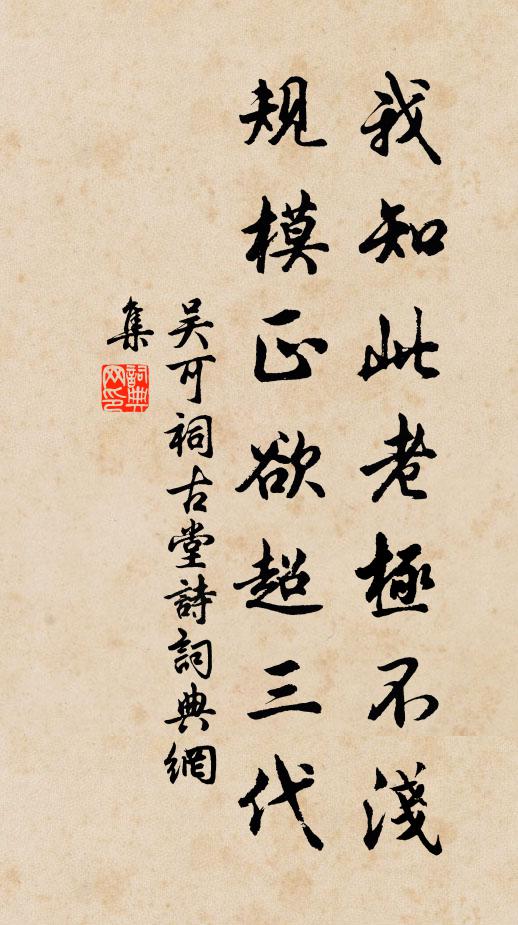 我知此老極不淺
規模正欲超三代
吴可祠古堂詩詞典網
集
詞典網印